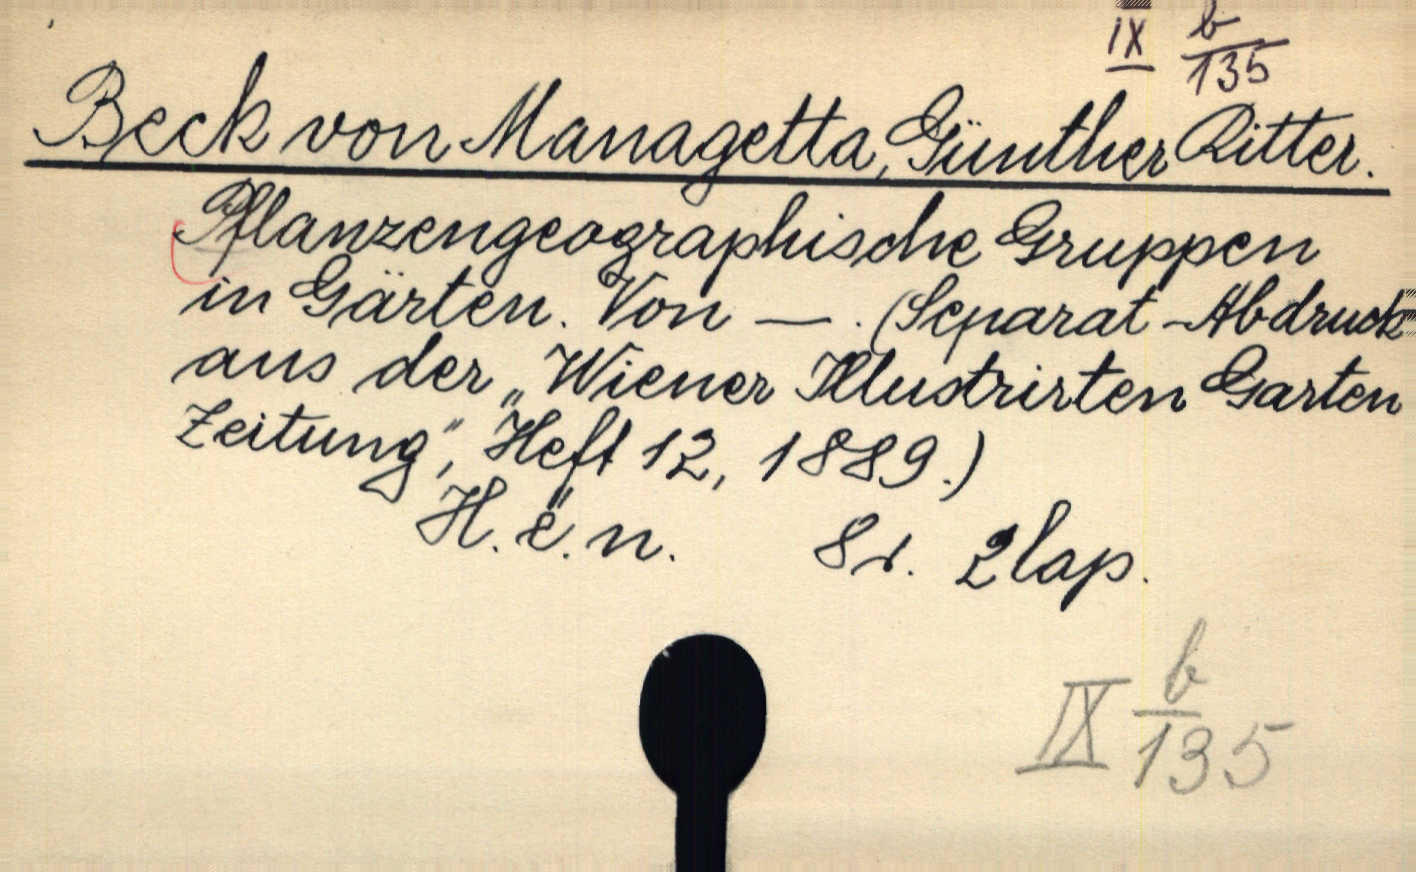 IX b/135
Beck von Managetta, Günther Ritter.
Pflanzengeographische Gruppen
in Gärten. Von —. (Separat-Abdruck
aus der „Wiener Illustrirten Garten
Zeitung", Heft 12, 1889.)
H. é. n. 8r. 2 lap.
IX b/135